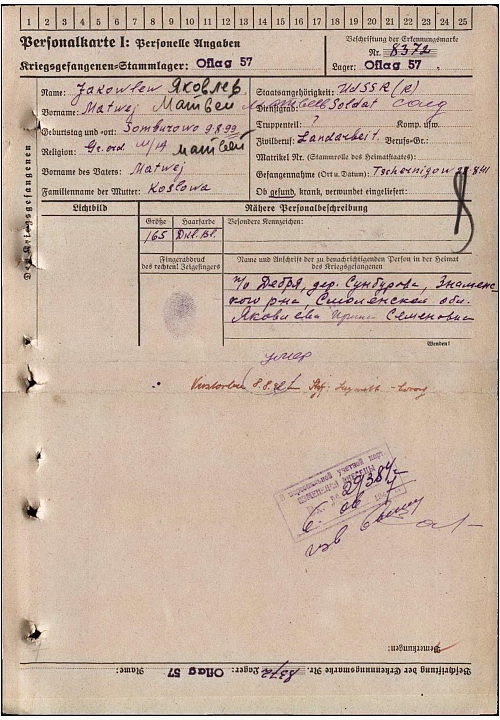 1 2 3 4 5 6 7 8 9 10 11 12 13 14 15 16 17 18 19 20 21 22 23 24 25
Personalkarte I: Personelle Angaben
Beschriftung der Erkennungsmarke
Nr. 8372
Kriegsgefangenen-Stammlager: Oflag 57
Lager: Oflag 57
Des Kriegsgefangenen
Name: Jakowlew Яковлев
Staatsangehörigkeit: UdSSR (R)
Vorname: Matwej Матвей
Dienstgrad: Soldat солд
Truppenteil: ? Komp. usw.
Geburtstag und -ort: Somburowo 9.8.99
Zivilberuf: Landarbeit. Berufs-Gr.:
Religion: Gr. ord. Матвей
Matrikel Nr. (Stammrolle des Heimatstaates):
Vorname des Vaters: Matwej
Gefangennahme (Ort u. Datum): Tschernigow
Familienname der Mutter: Koslowa
Ob gesund, krank, verwundet eingeliefert:
8
Lichtbild
Nähere Personalbeschreibung
Größe Haarfarbe Besondere Kennzeichen:
165 Dkl. Bl.
Fingerabdruck
des rechten! Zeigefingers
Name und Anschrift der zu benachrichtigenden Person in der Heimat
des Kriegsgefangenen
п/о Дебря, дер. Сунбурова, Знаменс
кого рна, Смоленской обл.
Яковлева Ирина Семеновна
Wenden!
умер
Verstorben
В персональной учетной карт.
изменения внесены
29384
Bemerkungen:
Name: Oflag 57 Lager: 8372 Beschriftung der Erkennungsmarke Nr.